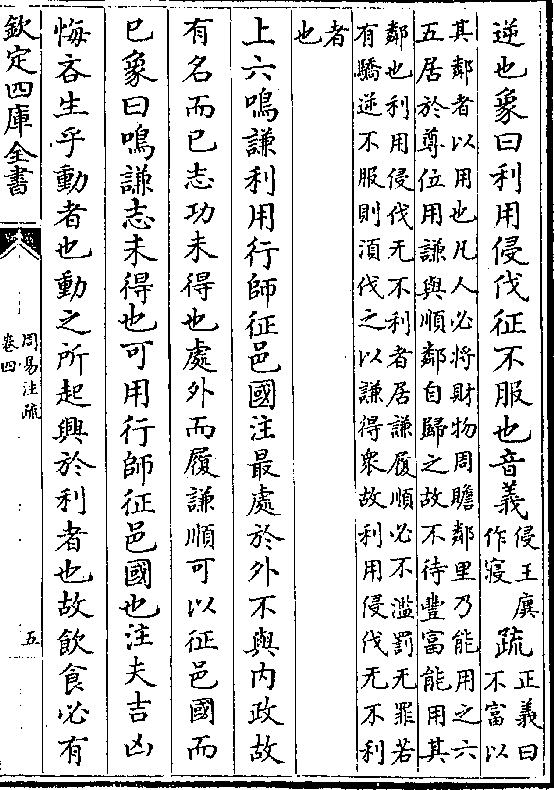 逆也象曰利用侵伐征不服也音義
侵王廙
作寑
疏
正義曰
不富以
其鄰者以用也凡人必將財物周贍鄰里乃能用之六
五居於尊位用謙與順鄰自歸之故不待豐富能用其
鄰也利用侵伐无不利者居謙履順必不濫罰无罪若
有驕逆不服則須伐之以謙得衆故利用侵伐无不利
者
也
上六鳴謙利用行師征邑國注最處於外不與内政故
有名而已志功未得也處外而履謙順可以征邑國而
已象曰鳴謙志未得也可用行師征邑國也注夫吉凶
悔吝生乎動者也動之所起興於利者也故飲食必有
欽定四庫全書
周易注疏
卷四
五